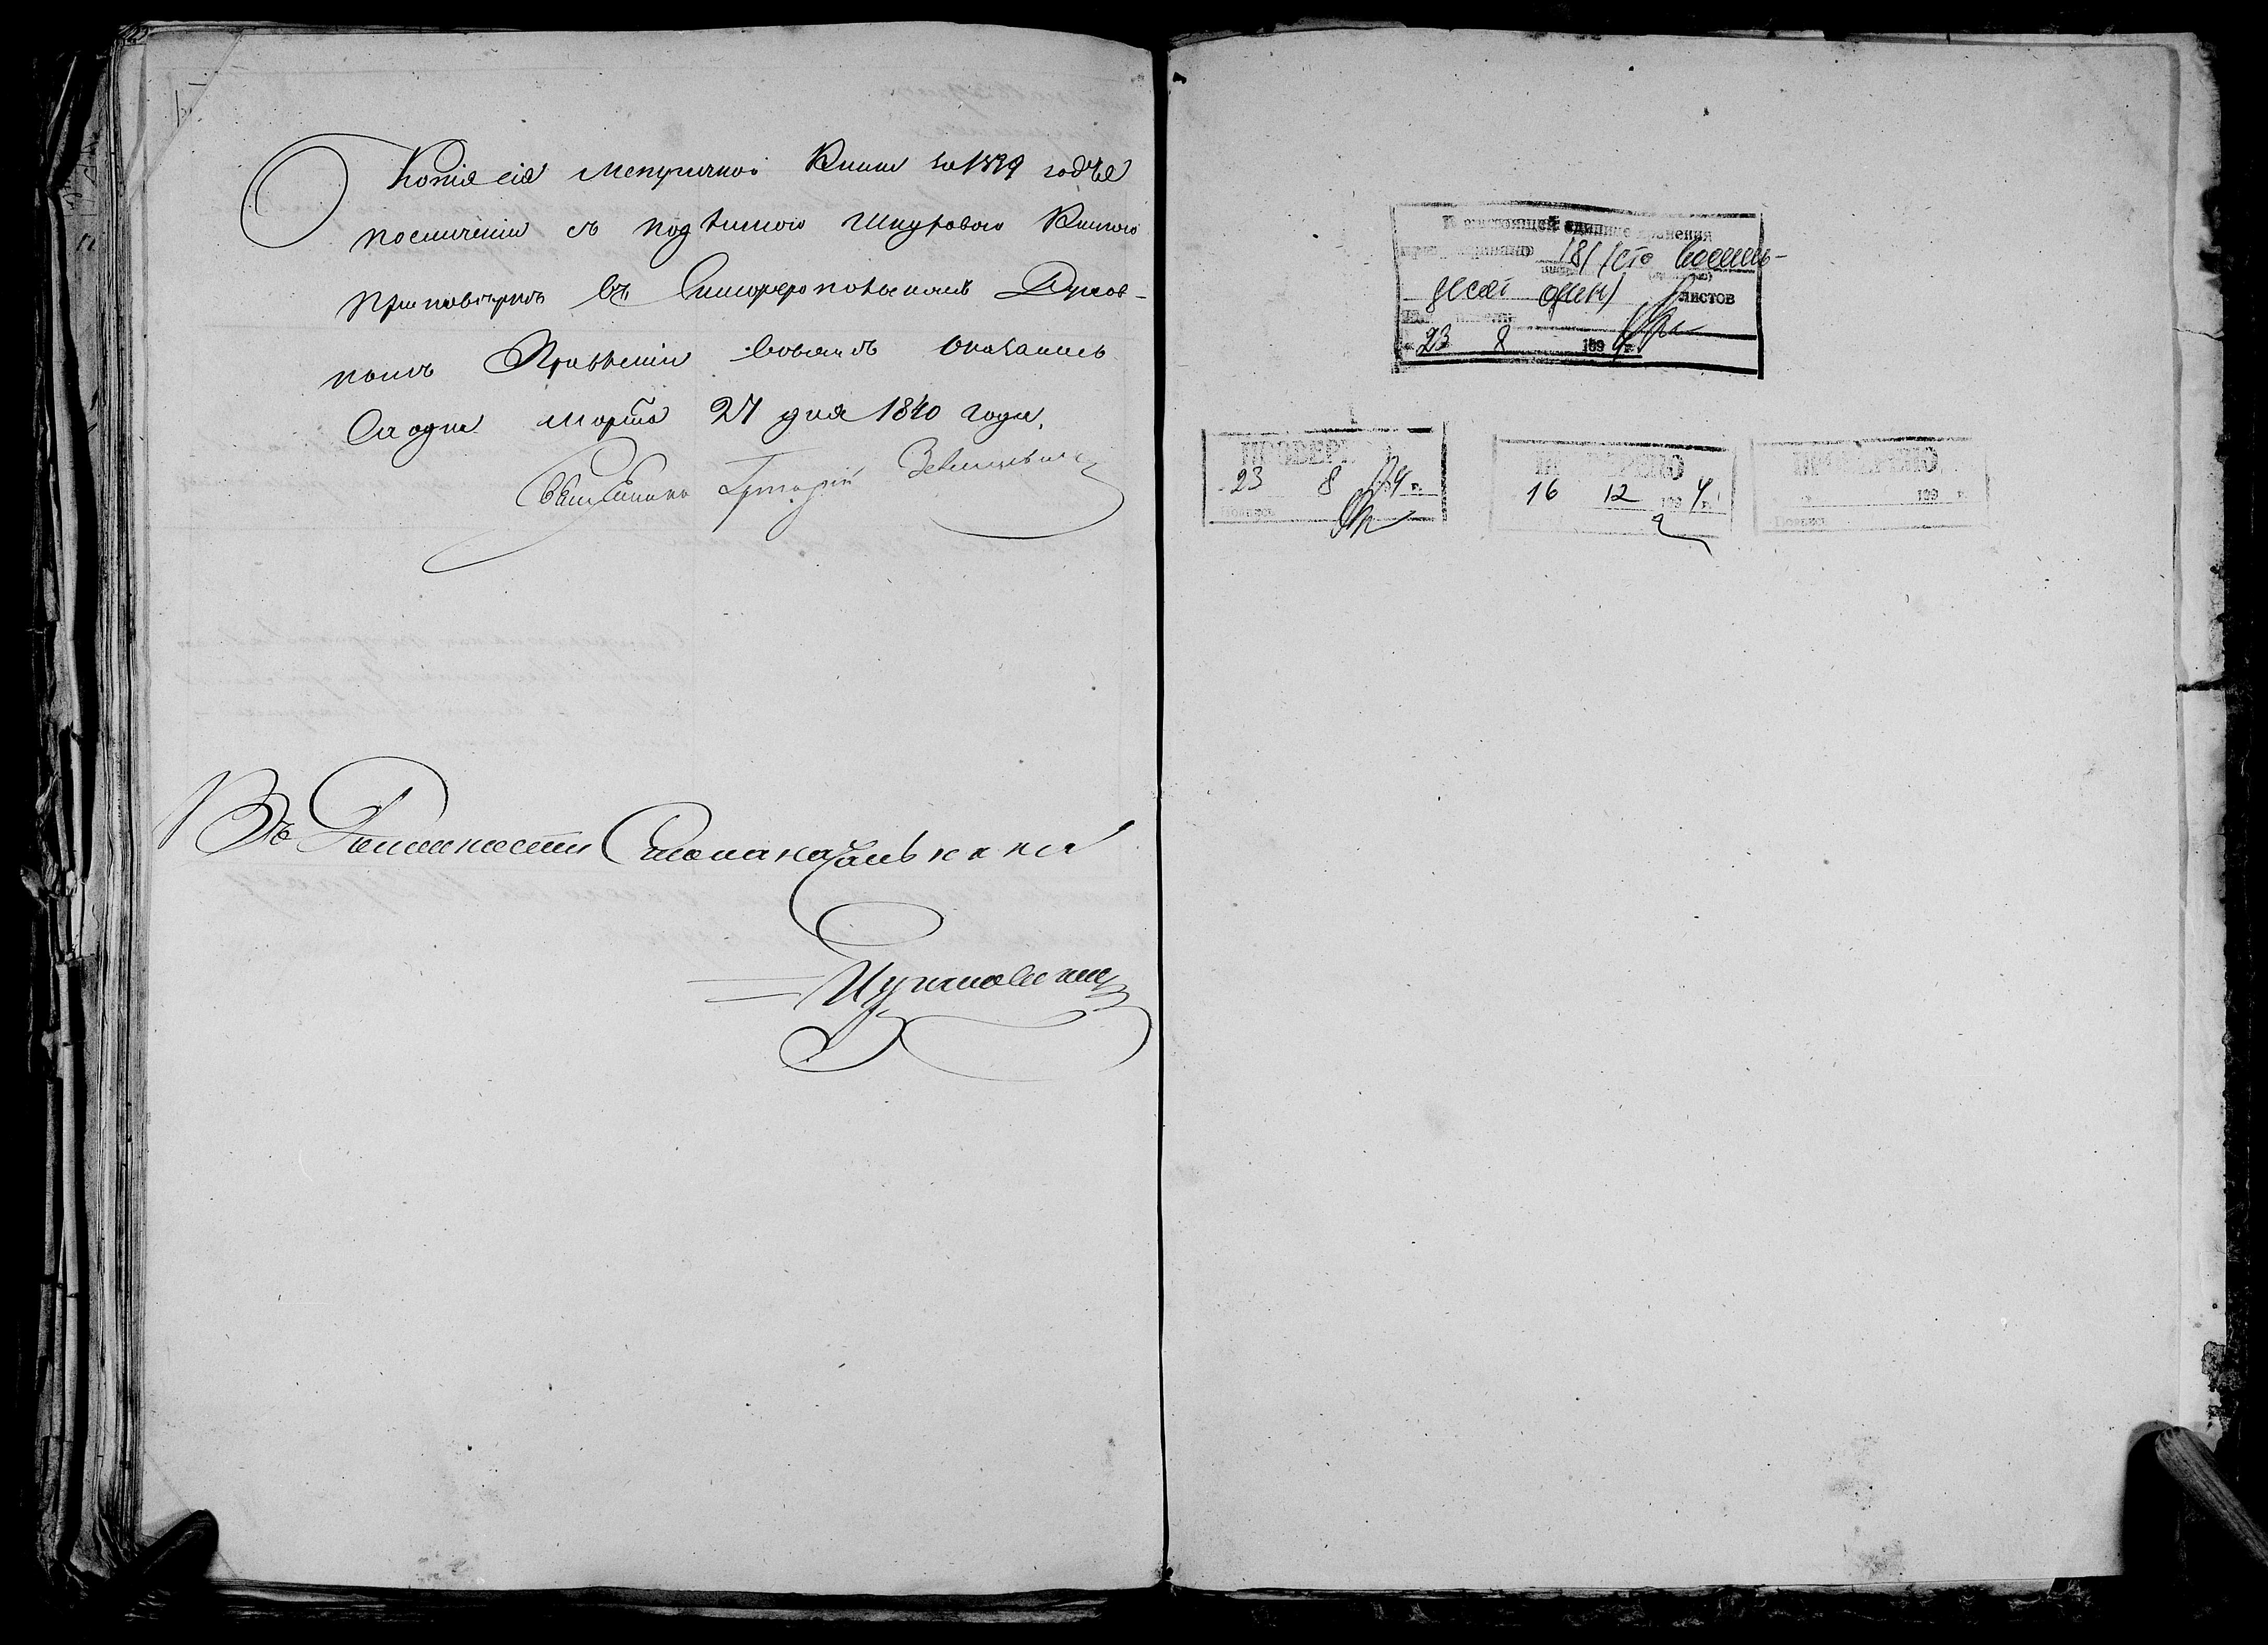 Копія сія Метричной Книги за 1839 годъ
по сличеніи съ подлинною Шнуровою Книгою
при повѣркѣ въ Симферопольскомъ Духов-
номъ Правленіи во всемъ оказалась
Сходна Марта 27 дня 1840 года.
Священникъ Григорій
Въ Должности Столоначальника
В настоящей единице хранения
181 (сто восемь-
десят один) листов
23 8 1994 г.
ПРОВЕРЕНО
23 8 1994 г.
Подпись
ПРОВЕРЕНО
16 12 1994 г.
ПРОВЕРЕНО
199 г.
Подпись